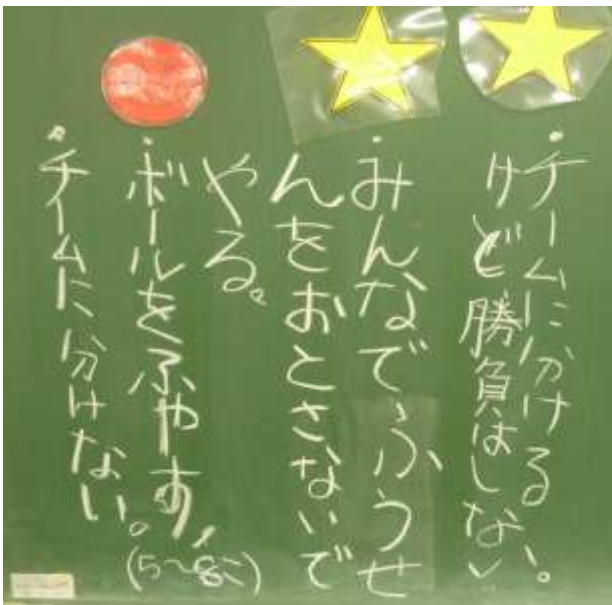 ・チームに分ける。
けど勝負はしない
・みんなで、ふうせ
んをおとさないで
やる。
・ボールをふやす。
(5〜8こ)
・チームに分けない。